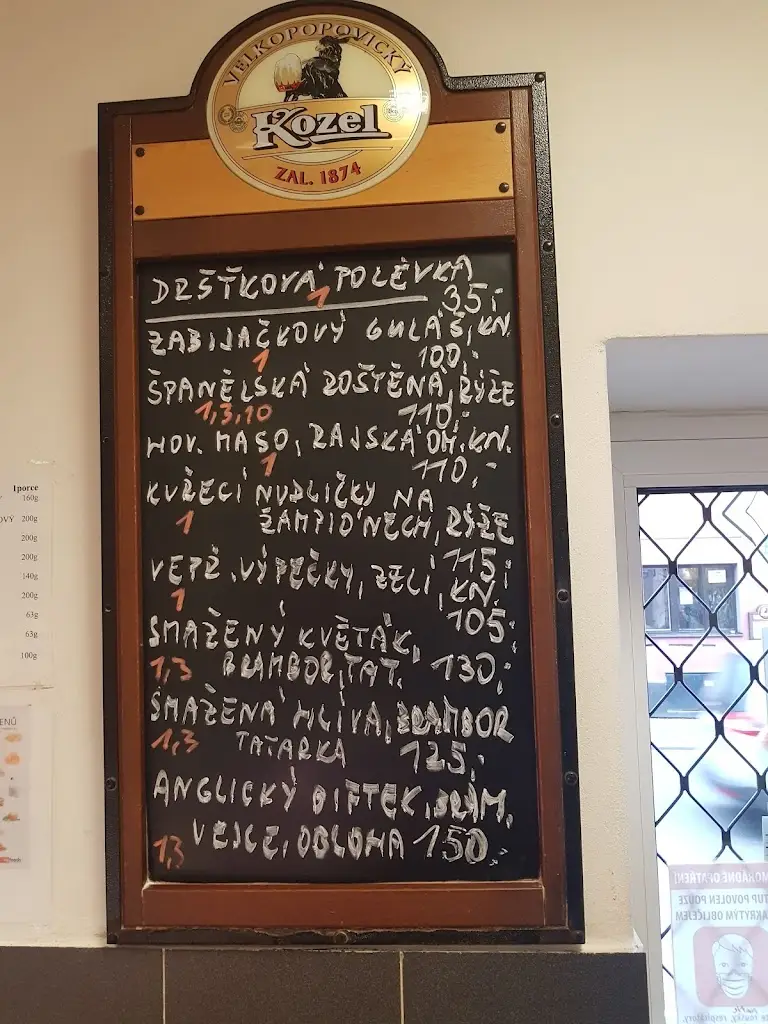 VELKOPOPOVICKÝ
Kozel
ZAL. 1874
DRŠŤKOVÁ POLÉVKA
1 35,-
ZABIJAČKOVÝ GULÁŠ, KN.
1 100,-
ŠPANĚLSKÁ ROŠTĚNÁ, RÝŽE
1,3,10 110,-
HOV. MASO, RAJSKÁ OM. KN.
1 110,-
KUŘECÍ NUDLIČKY NA
1 ŽAMPIÓNECH, RÝŽE
115,-
VEPŘ. VÝPEČKY, ZELÍ, KN.
1 105,-
SMAŽENÝ KVĚTÁK,
1,3 BRAMBOR, TAT. 130,-
SMAŽENÁ HLÍVA, BRAMBOR
1,3 TATARKA 125,-
ANGLICKÝ BIFTEK, BRAM,
1,3 VEJCE, OBLOHA 150,-
1porce
160g
OVÝ 200g
200g
200g
140g
200g
63g
63g
100g
ENŮ
MOŘÁDNÉ OPATŘENÍ
TUP POVOLEN POUZE
AKRYTÝM OBLIČEJEM